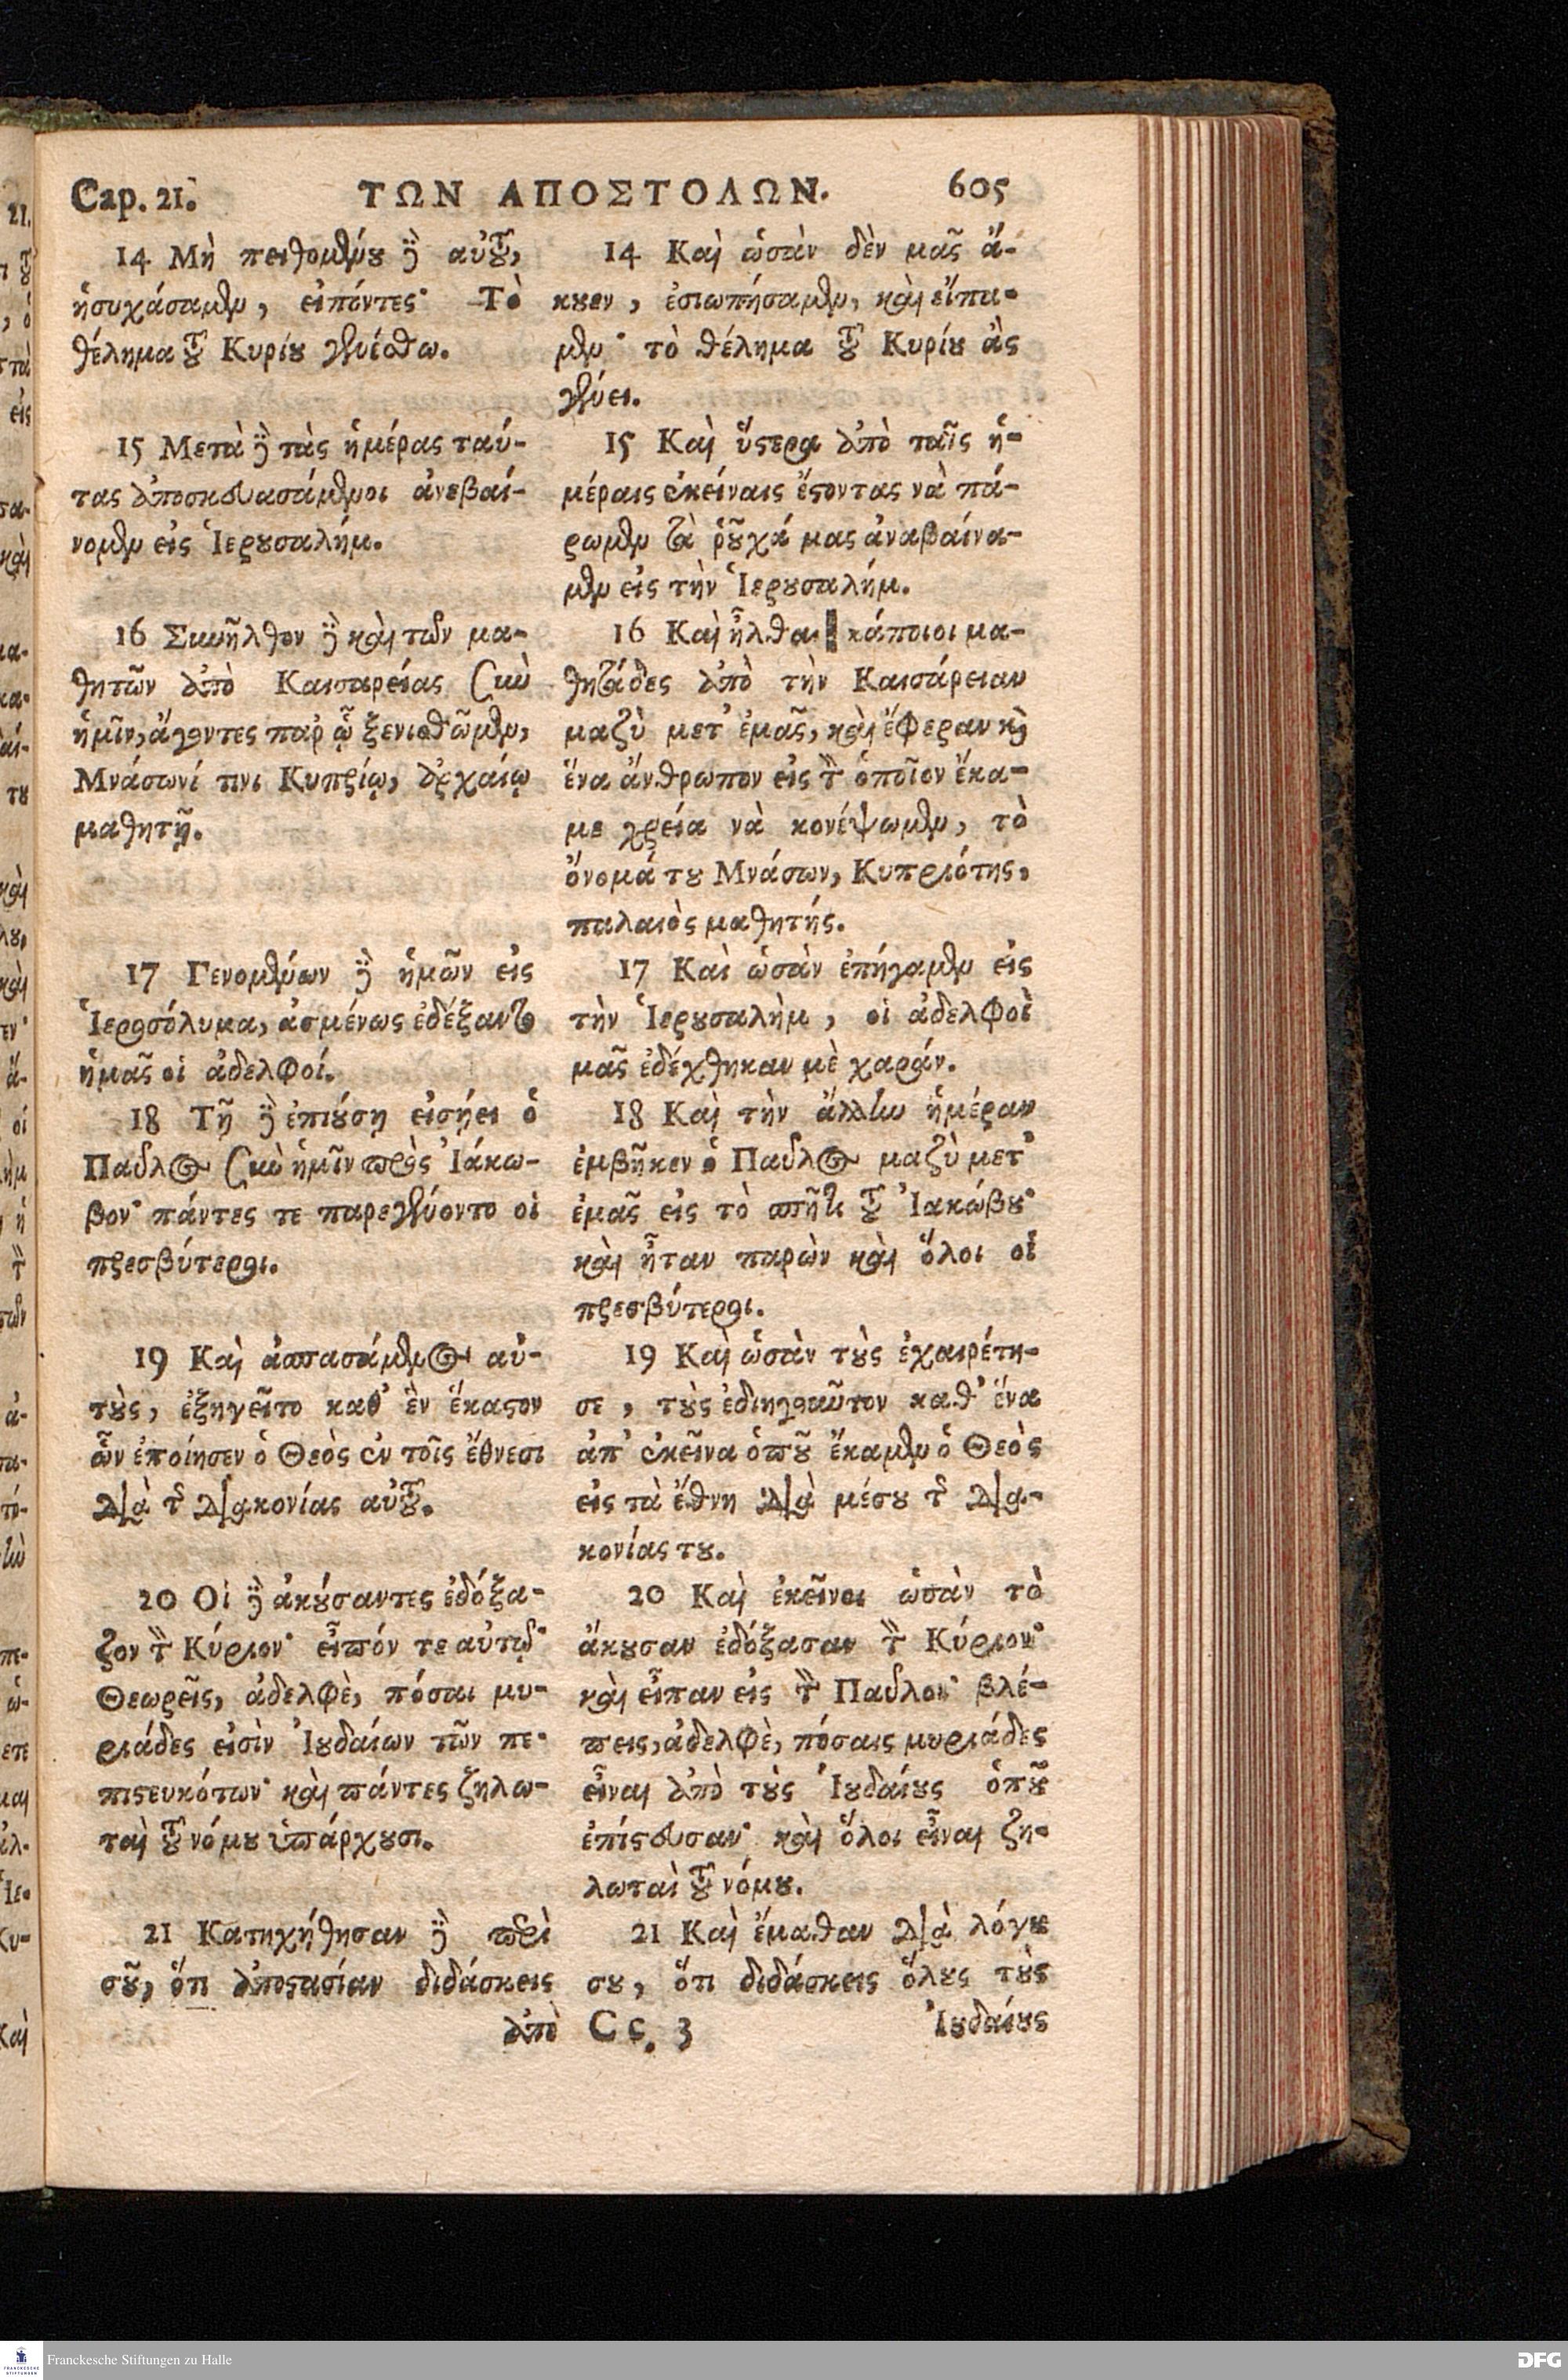 Cap. 21. ΤΩΝ ΑΠΟΣΤΟΛΩΝ. 605
14 Μὴ πειθομένȣ δὲ αὐτȣ͂,
ἡσυχάσαμεν, εἰπόντες· Τὸ
θέλημα τȣ͂ Κυρίȣ γενέσθω.
15 Μετὰ δὲ τὰς ἡμέρας ταύ-
τας ἀποσκευασάμενοι ἀνεβαί-
νομεν εἰς Ἱερȣσαλήμ.
16 Συνῆλθον δὲ καὶ τῶν μα-
θητῶν ἀπὸ Καισαρείας σὺν
ἡμῖν, ἄγοντες παρ ᾧ ξενισθῶμεν,
Μνάσωνί τινι Κυπρίῳ, ἀρχαίῳ
μαθητῇ.
17 Γενομένων δὲ ἡμῶν εἰς
Ἱεροσόλυμα, ἀσμένως ἐδέξαντο
ἡμᾶς οἱ ἀδελφοί.
18 Τῇ δὲ ἐπιȣ́σῃ εἰσῄει ὁ
Παῦλος σὺν ἡμῖν πρὸς Ἰάκω-
βον· πάντες τε παρεγένοντο οἱ
πρεσβύτεροι.
19 Καὶ ἀσπασάμενος αὐ-
τȣ̀ς, ἐξηγεῖτο καθ' ἓν ἕκαϛον
ὧν ἐποίησεν ὁ Θεὸς ἐν τοῖς ἔθνεσι
διὰ τῆς διακονίας αὐτȣ͂.
20 Οἱ δὲ ἀκȣ́σαντες ἐδόξα-
ζον τὸν Κύριον· εἶπόν τε αὐτῷ·
Θεωρεῖς, ἀδελφὲ, πόσαι μυ-
ριάδες εἰσὶν Ἰȣδαίων τῶν πε-
πιϛευκότων· καὶ πάντες ζηλω-
ταὶ τȣ͂ νόμȣ ὑπάρχȣσι.
21 Κατηχήθησαν δὲ περὶ
σȣ͂, ὅτι ἀποϛασίαν διδάσκεις
ἀπὸ
14 Καὶ ὡσὰν δὲν μᾶς ἄ-
κȣεν, ἐσιωπήσαμεν, καὶ εἴπα-
μεν· τὸ θέλημα τȣ͂ Κυρίȣ ἂς
γένει.
15 Καὶ ὕϛερα ἀπὸ ταῖς ἡ-
μέραις ἐκείναις ἔϛοντας νὰ πά-
ρωμεν τὰ ῥȣ͂χά μας ἀναβαίνα-
μεν εἰς τὴν Ἱερȣσαλήμ.
16 Καὶ ἦλθαν κάποιοι μα-
θητάδες ἀπὸ τὴν Καισάρειαν
μαζὺ μετ' ἐμᾶς, καὶ ἔφεραν κὶ
ἕνα ἄνθρωπον εἰς τὸν ὁποῖον ἔκα-
με χρεία νὰ κονέψωμεν, τὸ
ὄνομά τȣ Μνάσων, Κυπριότης,
παλαιὸς μαθητής.
17 Καὶ ὡσὰν ἐπήγαμεν εἰς
τὴν Ἱερȣσαλὴμ, οἱ ἀδελφοὶ
μᾶς ἐδέχθηκαν μὲ χαράν.
18 Καὶ τὴν ἄλλην ἡμέραν
ἐμβῆκεν ὁ Παῦλος μαζὺ μετ'
ἐμᾶς εἰς τὸ σπῆτι τȣ͂ Ἰακώβȣ·
καὶ ἦταν παρὼν καὶ ὅλοι οἱ
πρεσβύτεροι.
19 Καὶ ὡσὰν τȣ̀ς ἐχαιρέτη-
σε, τȣ̀ς ἐδιηγοαῦτον καθ' ἕνα
ἀπ' ἐκεῖνα ὁπȣ͂ ἔκαμεν ὁ Θεὸς
εἰς τὰ ἔθνη διὰ μέσȣ τῆς δια-
κονίας τȣ.
20 Καὶ ἐκεῖνοι ὡσὰν τὸ
ἄκȣσαν ἐδόξασαν τὸν Κύριον·
καὶ εἶπαν εἰς τὸν Παῦλον· βλέ-
πεις, ἀδελφὲ, πόσαις μυριάδες
εἶναι ἀπὸ τȣ̀ς Ἰȣδαίȣς ὁπȣ͂
ἐπίϛευσαν· καὶ ὅλοι εἶναι ζη-
λωταὶ τȣ͂ νόμȣ.
21 Καὶ ἔμαθαν διὰ λόγȣ
σȣ, ὅτι διδάσκεις ὅλȣς τȣ̀ς
Cc. 3 Ἰȣδαίȣς
Franckesche Stiftungen zu Halle
FRANCKESCHE STIFTUNGEN
DFG